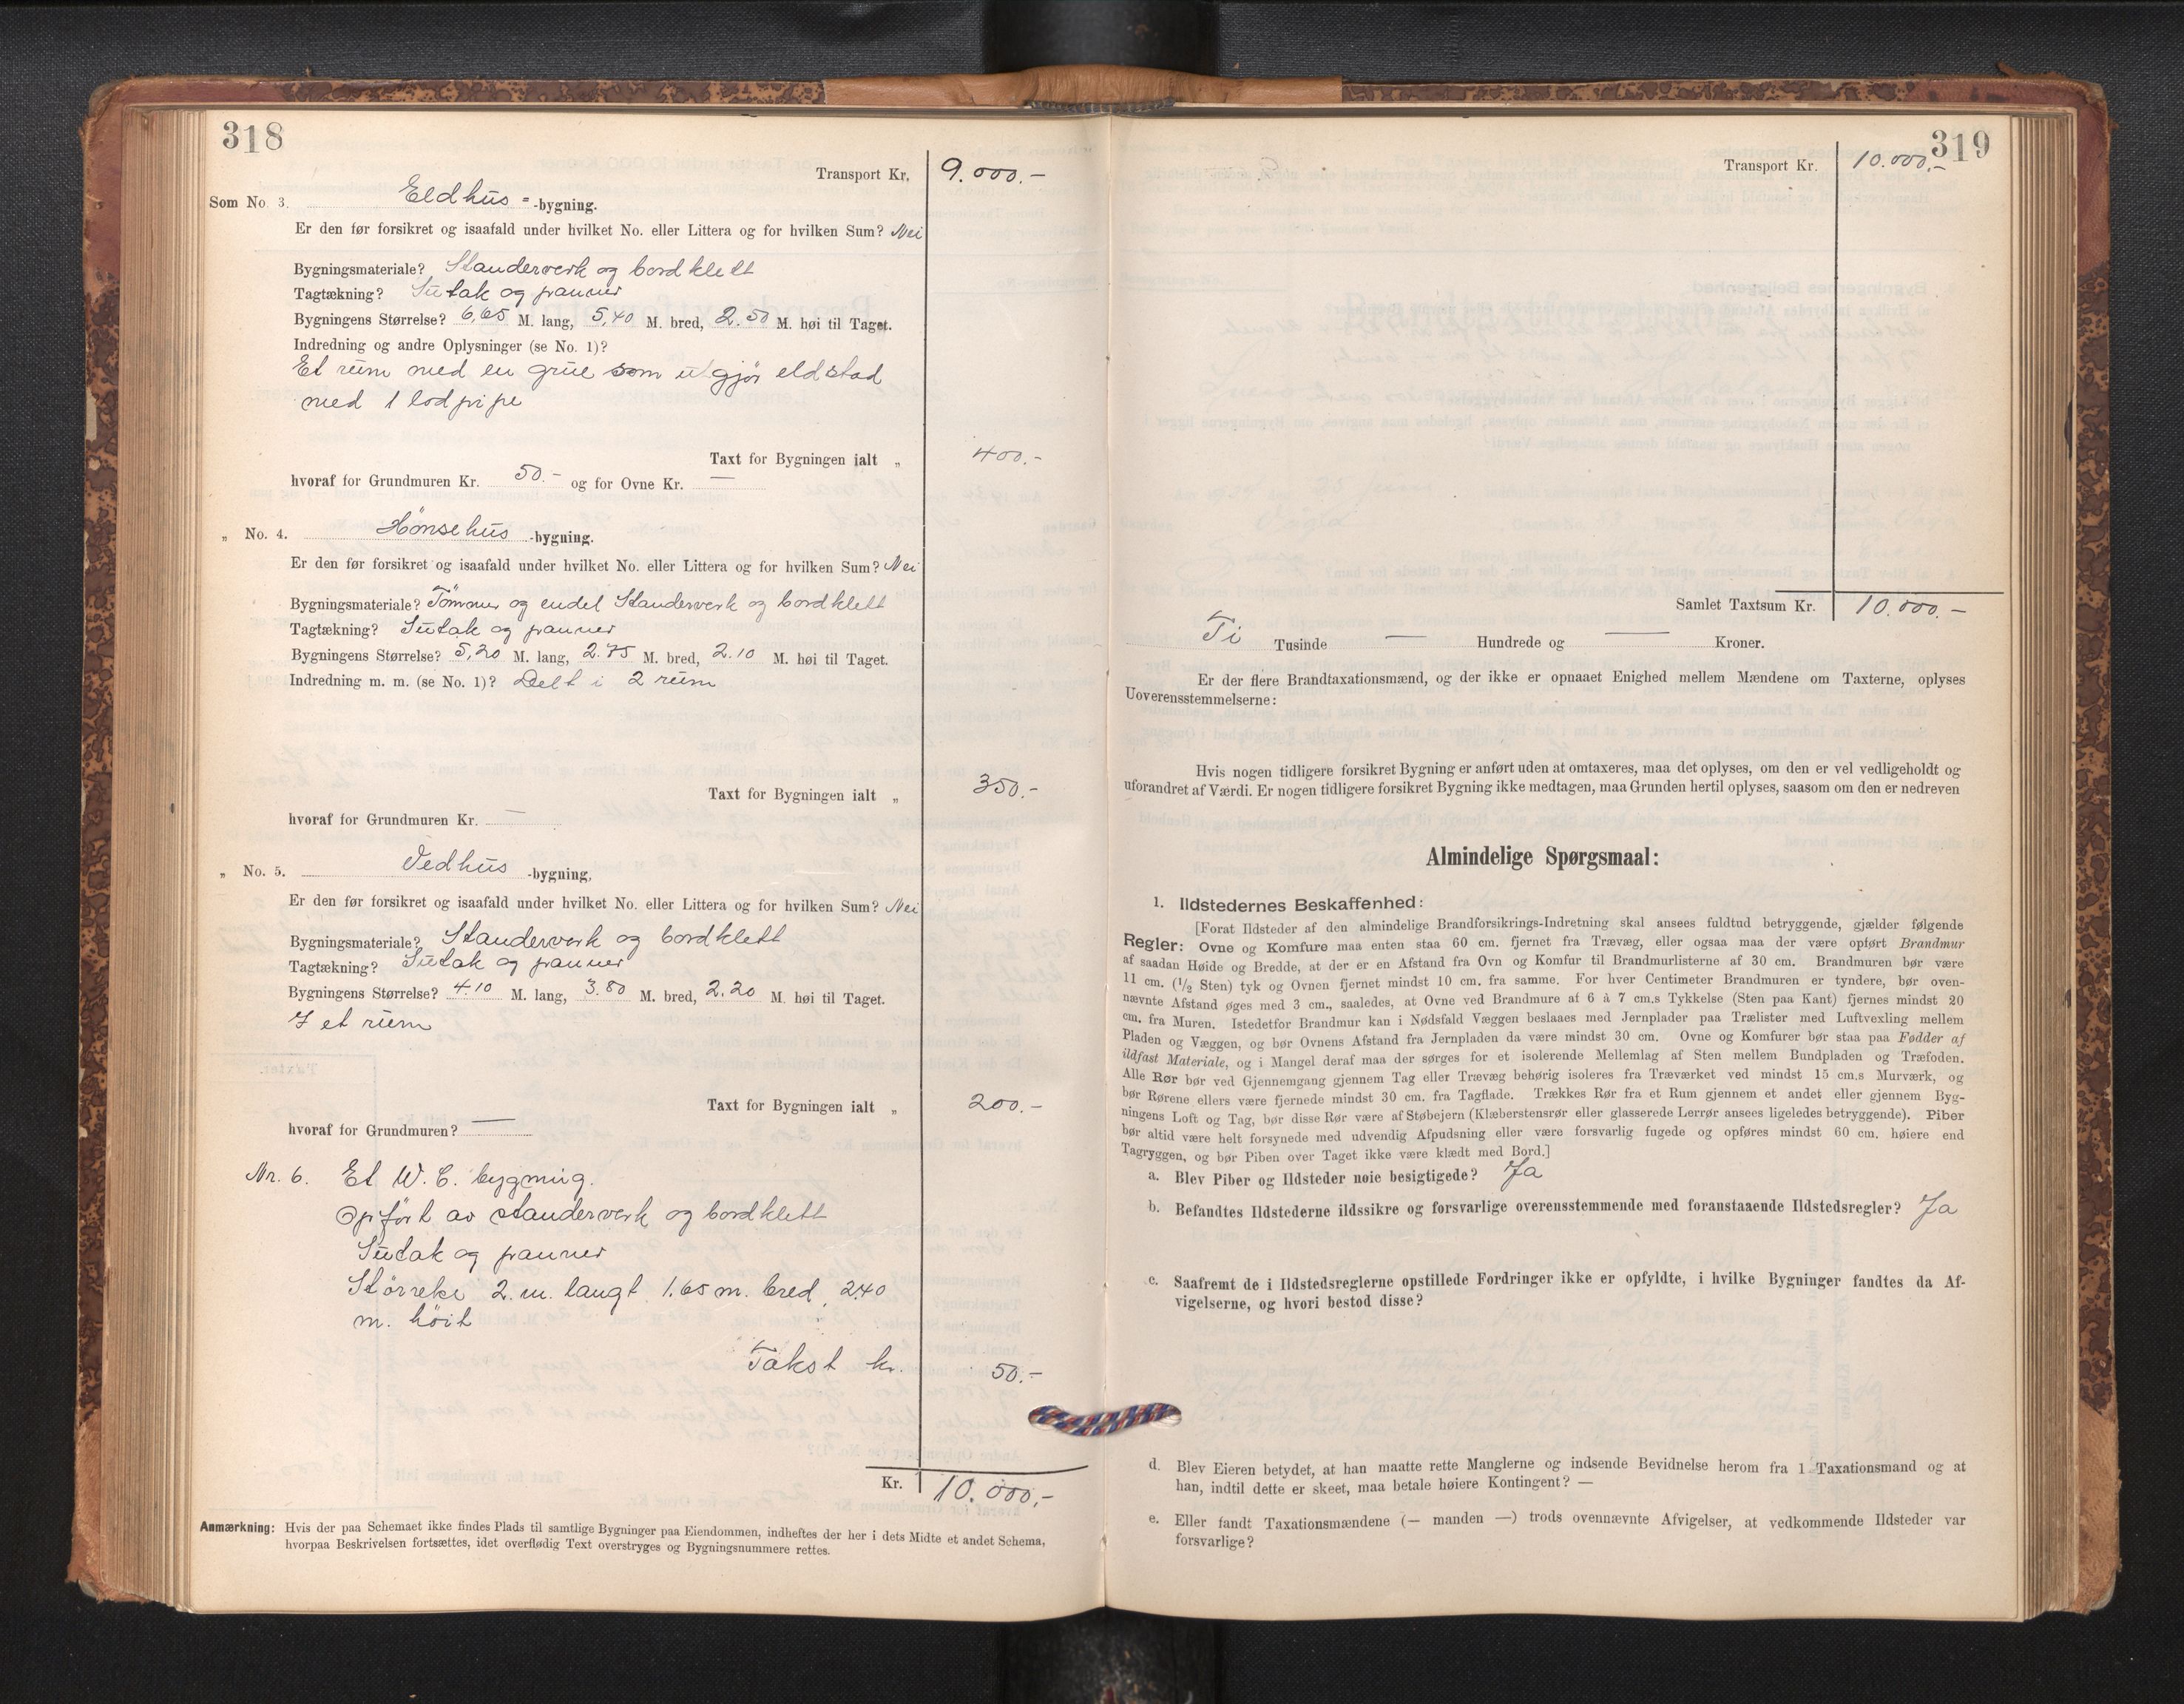 318
Transport Kr. 9.000.-
Som No. 3. Eldhus - -bygning.
Er den før forsikret og isaafald under hvilket No. eller Littera og for hvilken Sum? Nei
Bygningsmateriale? Standerverk og bordklett
Tagtækning? Sutak og panner
Bygningens Størrelse? 6,65 M. lang, 5,40 M. bred, 2.50 M. høi til Taget.
Indredning og andre Oplysninger (se No. 1)?
Et rum med en grue som utgjör eldstad
med 1 lodpipe
Taxt for Bygningen ialt „ 400.-
hvoraf for Grundmuren Kr. 50.- og for Ovne Kr. —
„ No. 4. Hönsehus -bygning.
Er den før forsikret og isaafald under hvilket No. eller Littera og for hvilken Sum? Nei
Bygningsmateriale? Tömmer og endel Standerverk og bordklett
Tagtækning? Sutak og panner
Bygningens Størrelse? 5,20 M. lang, 2.75 M. bred, 2.10 M. høi til Taget.
Indredning m. m. (se No. 1)? Delt i 2 rum
Taxt for Bygningen ialt „ 350.-
hvoraf for Grundmuren Kr. —
„ No. 5. Vedhus -bygning,
Er den før forsikret og isaafald under hvilket No. eller Littera og for hvilken Sum? Nei
Bygningsmateriale? Standerverk og bordklett
Tagtækning? Sutak og panner
Bygningens Størrelse? 4.10 M. lang, 3.80 M. bred, 2.20 M. høi til Taget.
I et rum
Taxt for Bygningen ialt „ 200.-
hvoraf for Grundmuren? —
Nr. 6. Et W. C. bygning.
Opfört av standerverk og bordklett
Sutak og panner
Störreke 2. m. langt 1.65 m. bred, 2.40
m. höit
Takst kr. 50.-
Kr. 10.000,-
Anmærkning: Hvis der paa Schemaet ikke findes Plads til samtlige Bygninger paa Eiendommen, indheftes der her i dets Midte et andet Schema,
hvorpaa Beskrivelsen fortsættes, idet overflødig Text overstryges og Bygningsnummere rettes.
319
Transport Kr. 10.000.-
Samlet Taxtsum Kr. 10.000.-
Ti Tusinde — Hundrede og — Kroner.
Er der flere Brandtaxationsmænd, og der ikke er opnaaet Enighed mellem Mændene om Taxterne, oplyses
Uoverensstemmelserne:
Hvis nogen tidligere forsikret Bygning er anført uden at omtaxeres, maa det oplyses, om den er vel vedligeholdt og
uforandret af Værdi. Er nogen tidligere forsikret Bygning ikke medtagen, maa Grunden hertil oplyses, saasom om den er nedreven
Almindelige Spørgsmaal:
1. Ildstedernes Beskaffenhed:
[Forat Ildsteder af den almindelige Brandforsikrings-Indretning skal ansees fuldtud betryggende, gjælder følgende
Regler: Ovne og Komfure maa enten staa 60 cm. fjernet fra Trævæg, eller ogsaa maa der være opført Brandmur
af saadan Høide og Bredde, at der er en Afstand fra Ovn og Komfur til Brandmurlisterne af 30 cm. Brandmuren bør være
11 cm. (1/2 Sten) tyk og Ovnen fjernet mindst 10 cm. fra samme. For hver Centimeter Brandmuren er tyndere, bør oven-
nævnte Afstand øges med 3 cm., saaledes, at Ovne ved Brandmure af 6 à 7 cm.s Tykkelse (Sten paa Kant) fjernes mindst 20
cm. fra Muren. Istedetfor Brandmur kan i Nødsfald Væggen beslaaes med Jernplader paa Trælister med Luftvexling mellem
Pladen og Væggen, og bør Ovnens Afstand fra Jernpladen da være mindst 30 cm. Ovne og Komfurer bør staa paa Fødder af
ildfast Materiale, og i Mangel deraf maa der sørges for et isolerende Mellemlag af Sten mellem Bundpladen og Træfoden.
Alle Rør bør ved Gjennemgang gjennem Tag eller Trævæg behørig isoleres fra Træværket ved mindst 15 cm.s Murværk, og
bør Rørene ellers være fjernede mindst 30 cm. fra Tagflade. Trækkes Rør fra et Rum gjennem et andet eller gjennem Byg-
ningens Loft og Tag, bør disse Rør være af Støbejern (Klæberstensrør eller glasserede Lerrør ansees ligeledes betryggende). Piber
bør altid være helt forsynede med udvendig Afpudsning eller være forsvarlig fugede og opføres mindst 60 cm. høiere end
Tagryggen, og bør Piben over Taget ikke være klædt med Bord.]
a. Blev Piber og Ildsteder nøie besigtigede? Ja
b. Befandtes Ildstederne ildssikre og forsvarlige overensstemmende med foranstaaende Ildstedsregler? Ja
c. Saafremt de i Ildstedsreglerne opstillede Fordringer ikke er opfyldte, i hvilke Bygninger fandtes da Af-
vigelserne, og hvori bestod disse?
d. Blev Eieren betydet, at han maatte rette Manglerne og indsende Bevidnelse herom fra 1 Taxationsmand og at
han, indtil dette er skeet, maa betale høiere Kontingent? —
e. Eller fandt Taxationsmændene (— manden —) trods ovennævnte Afvigelser, at vedkommende Ildsteder var
forsvarlige?